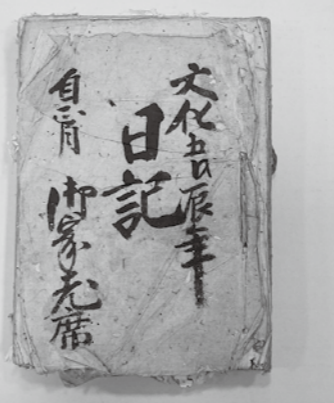 文化五戊辰年
日記
自正月 御家老席